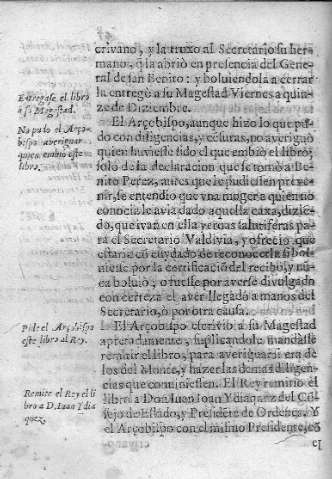 criuano, y la truxo al Secretario su her-
mano, q̃ la abrió en presencia del Gene-
ral de san Benito: y boluiendola a cerrar
la entregò a su Magestad Viernes a quin-
ze de Diziembre.
Entregase el libro
a su Magestad.
El Arçobispo, aunque hizo lo que pu-
do con diligencias, y cẽsuras, no aueriguò
quien huuiesse sido el que embiò el libro;
solo de la declaracion que se tomò a Be-
nito Perez, antes que le pudiessen preue-
nir, se entendio que vna muger a quien no
conocia le auia dado aquella caxa, dizië-
do, que iuan en ella yeruas salutiferas pa-
ra el Secretario Valdiuia, y ofrecio que
estaria cõ cuydado de reconocerla si bol-
uiesse por la certificacion del recibo, y nũ-
ca boluió, o fuesse por auerse diuulgado
con certeza el auer llegado a manos del
Secretario, ò por otra causa.
No pudo el Arço-
bispo aueriguar
quien embió este
libro.
El Arçobispo escriuio a su Magestad
apretadamente, suplicandole mandasse
remitir el libro, para aueriguar si era de
los del Monte, y hazer las demas diligen-
cias que conuiniessen. El Rey remitio el
libro a Don Iuan Ydiaquez del Cõ-
sejo de Estado, y Presidẽte de Ordenes. Y
el Arçobispo con el mismo Presidente, cõ
Pide el Arçobispo
este libro al Rey.
Remite el Rey el li
bro a D. Iuan Ydia
quez.